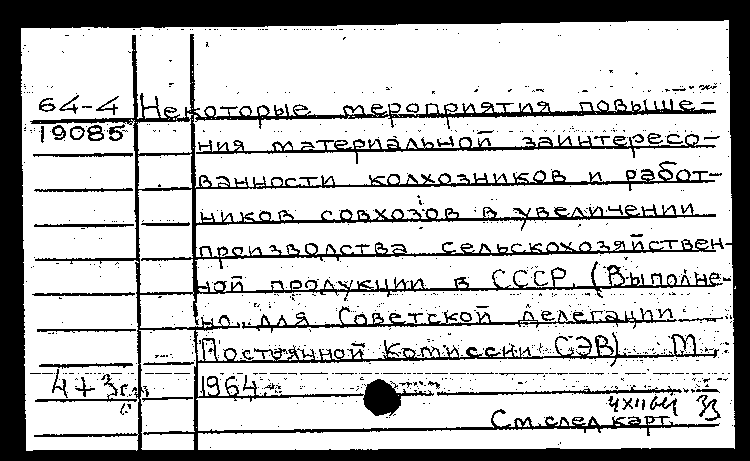 64-4 Некоторые мероприятия повыше-
19085 ния материальной заинтересо-
ванности колхозников и работ-
ников совхозов в увеличении
производства сельскохозяйствен-
ной продукции в СССР. (Выполне-
но для Советской делегации
Постоянной Комиссии СЭВ) М.,
4+3 1964.
См. след карт.